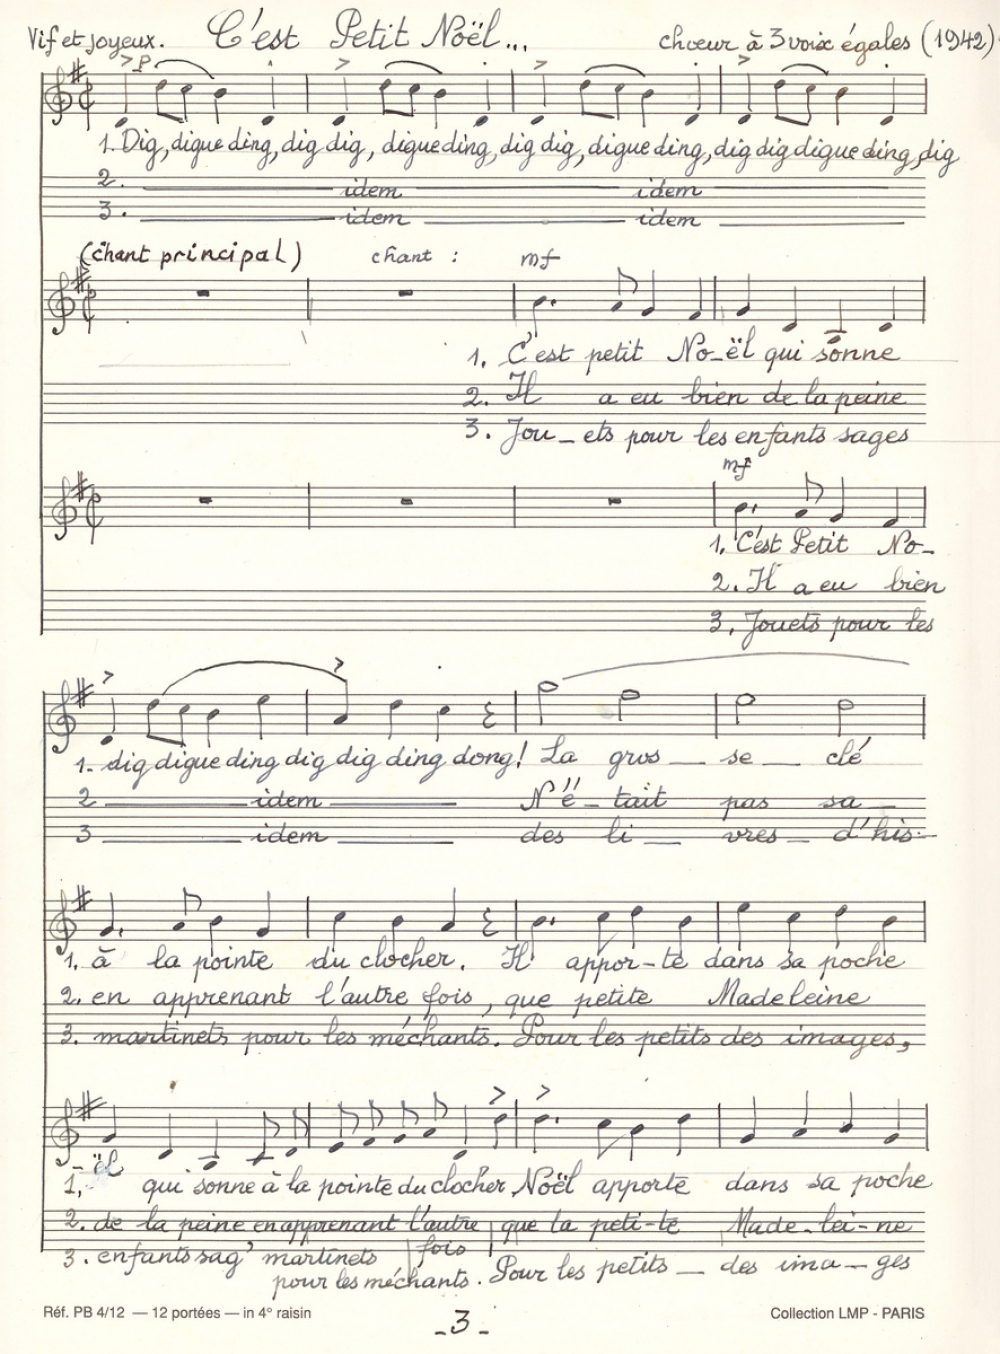 Vif et joyeux. C'est Petit Noël... chœur à 3 voix égales (1942)
P
1. Dig, digue ding, dig dig, digue ding, dig dig, digue ding, dig dig digue ding dig
2. idem idem
3. idem idem
(chant principal) chant : mf
1. C'est petit No_ël qui sonne
2. Il a eu bien de la peine
3. Jou_ets pour les enfants sages
mf
1. C'est Petit No_
2. Il a eu bien
3. Jouets pour les
1. dig digue ding dig dig ding dong! La gros _ se _ clé
2 idem N'é_tait pas sa _
3 idem des li _ vres _ d'his_
1. à la pointe du clocher. Il appor-te dans sa poche
2. en apprenant l'autre fois, que petite Madeleine
3. martinets pour les méchants. Pour les petits des images,
_ël
1. qui sonne à la pointe du clocher Noël apporte dans sa poche
2. de la peine en apprenant l'autre que la peti-te Made-lei-ne
3. enfants sag' martinets fois
pour les méchants. Pour les petits _ des ima_ges
Réf. PB 4/12 — 12 portées — in 4° raisin Collection LMP - PARIS
_3_